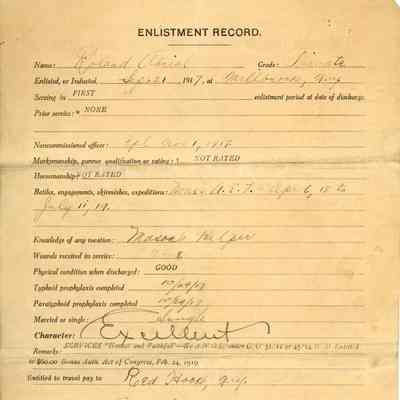 ENLISTMENT RECORD.
Name: Roland Grade: Private
Enlisted, or Inducted, Sept 21, 1917, at N.Y.
Serving in FIRST enlistment period at date of discharge.
Prior service:* NONE
Noncommissioned officer: 1, 1918
Marksmanship, gunner qualification or rating:† NOT RATED
Horsemanship: NOT RATED
Battles, engagements, skirmishes, expeditions: A.E.F. Apr 6, 18 to
July 11, 19.
Knowledge of any vocation: Mason's Helper
Wounds received in service:
Physical condition when discharged: GOOD
Typhoid prophylaxis completed
Paratyphoid prophylaxis completed
Married or single: Single
Character: Excellent
Remarks: SERVICES "Honest and Faithful"
or $60.00 Bonus Auth. Act of Congress, Feb. 24, 1919
Entitled to travel pay to Red Hook, N.Y.